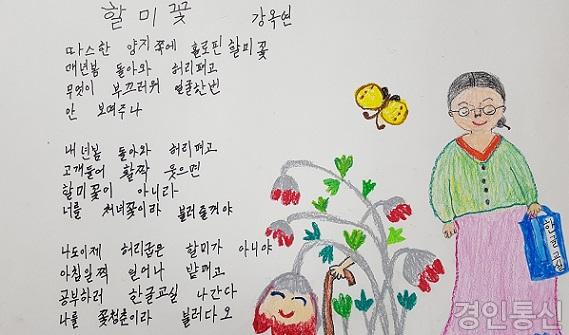 할미꽃
강옥연
따스한 양지쪽에 홀로핀 할미꽃
매년봄 돌아와 허리펴고
무엇이 부끄러워 얼굴한번
안 보여주나
내년봄 돌아와 허리펴고
고개들어 활짝 웃으면
할미꽃이 아니라
너를 처녀꽃이라 불러줄거야
나도이제 허리굽은 할미가 아니야
아침일찍 일어나 밭매고
공부하러 한글교실 나간다
나를 꽃청춘이라 불러다오
한글교실
경인통신